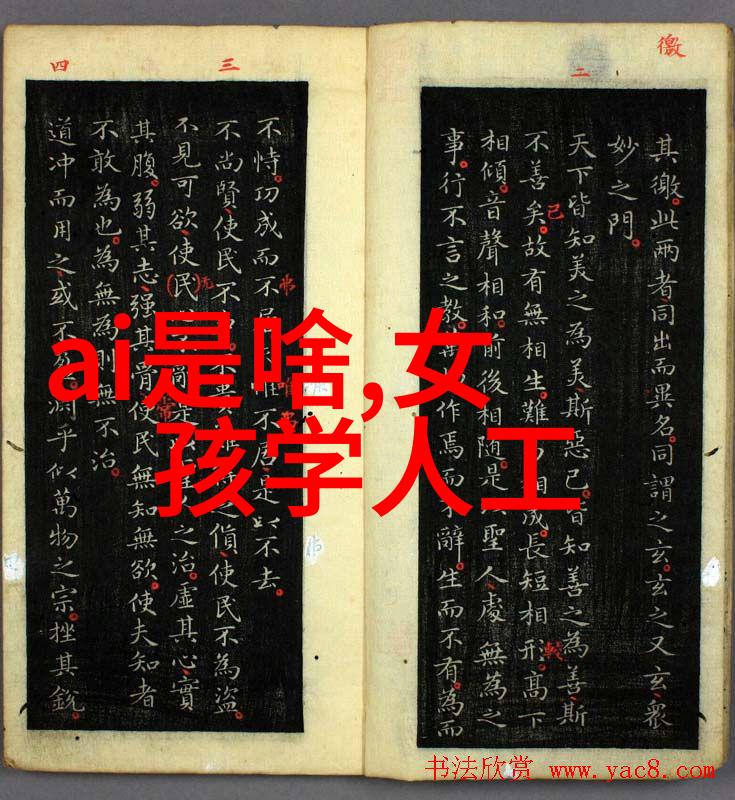 徼
二
其徼。此兩者同出而異名。同謂之玄。玄之又玄、眾
妙之門。
天下皆知美之為美、斯惡已。皆知善之為善斯
不善矣。故有無相生。難 相成。長短相形。高下
相傾。音聲相和。前後相隨。是以聖人處無為之
事。行不言之教。萬 作焉而不辭。生而不有。為而
已
較
三
四
不恃。功成而不 惟不居。是以不去。
不尚賢、使民不 不貴難 之 、使民不為盜。
不見可欲、使民 之治。虛其心、實
其腹。弱其志、强其骨。使民無知無欲。使夫知者
不敢為也。為無為則無不治。
道冲而用之、或不盈。淵乎似萬物之宗。挫其銳。
无
常
ai是啥,女
孩学人工
书法欣赏 www.yac8.com